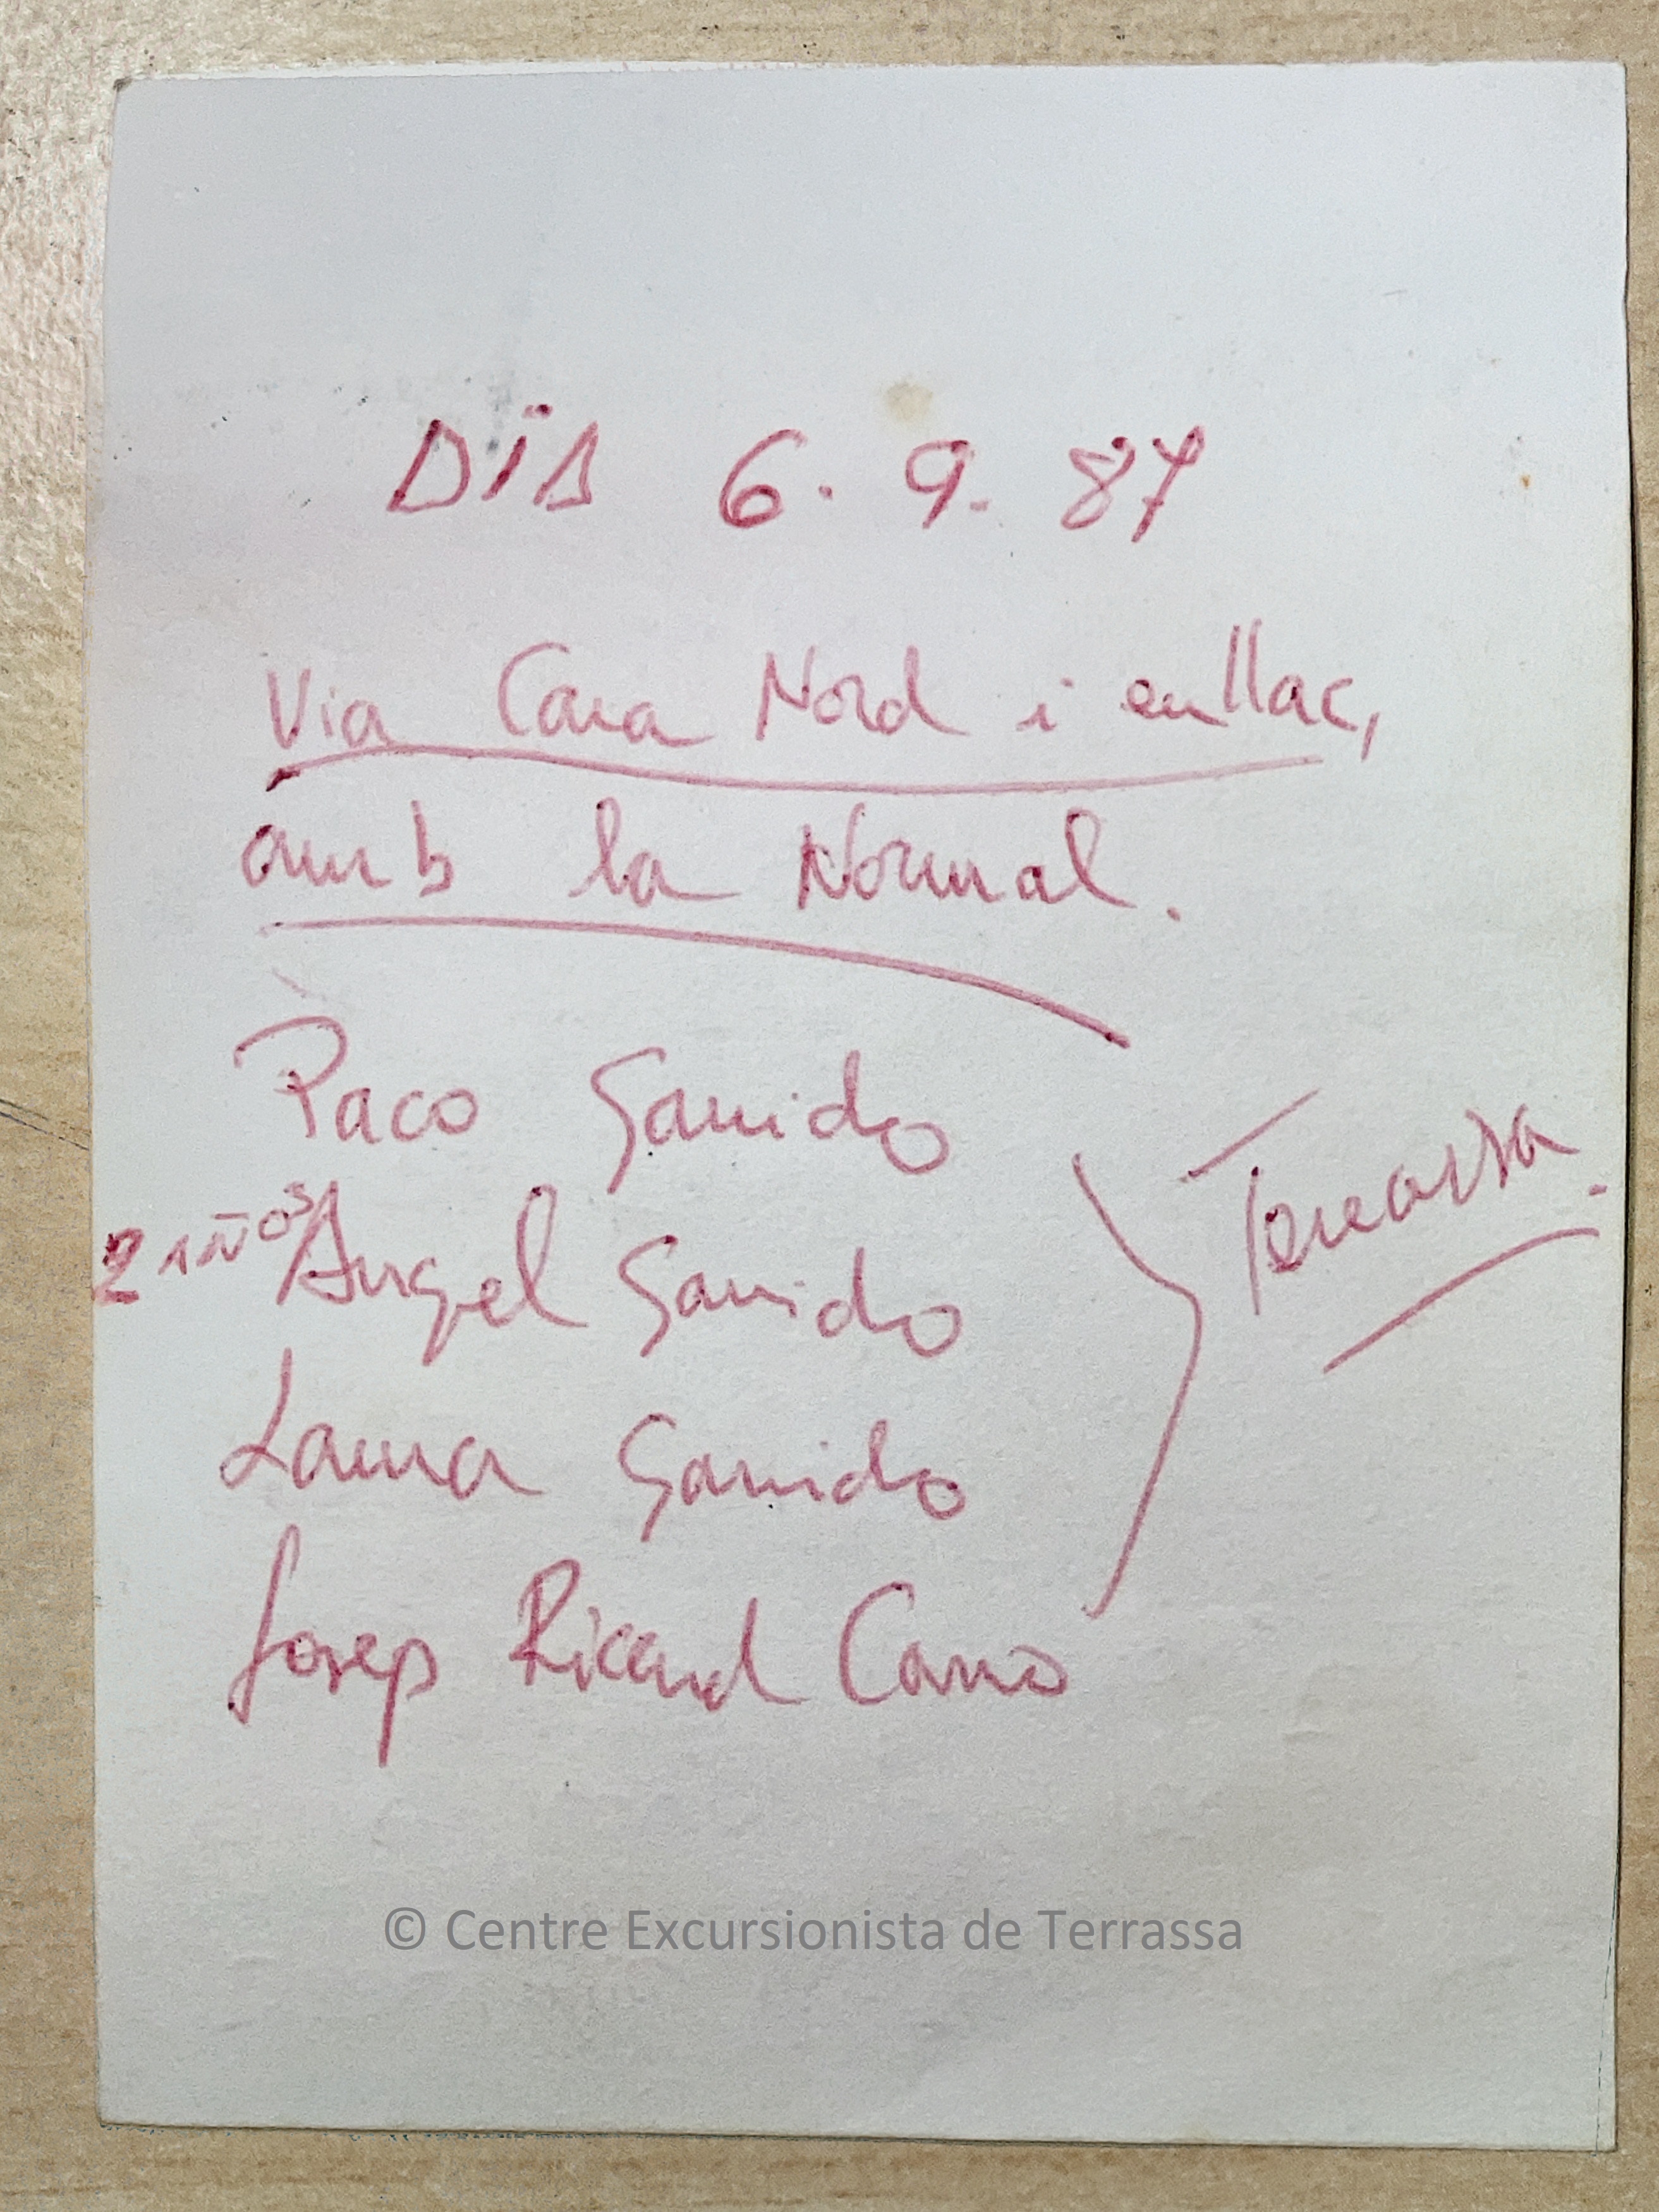 DÏA 6. 9. 87
Via Cara Nord i enllaç
amb la Normal.
Paco Garrido
2 AÑOS Angel Garrido
Laura Garrido
Josep Ricard Cano
Terrassa.
© Centre Excursionista de Terrassa